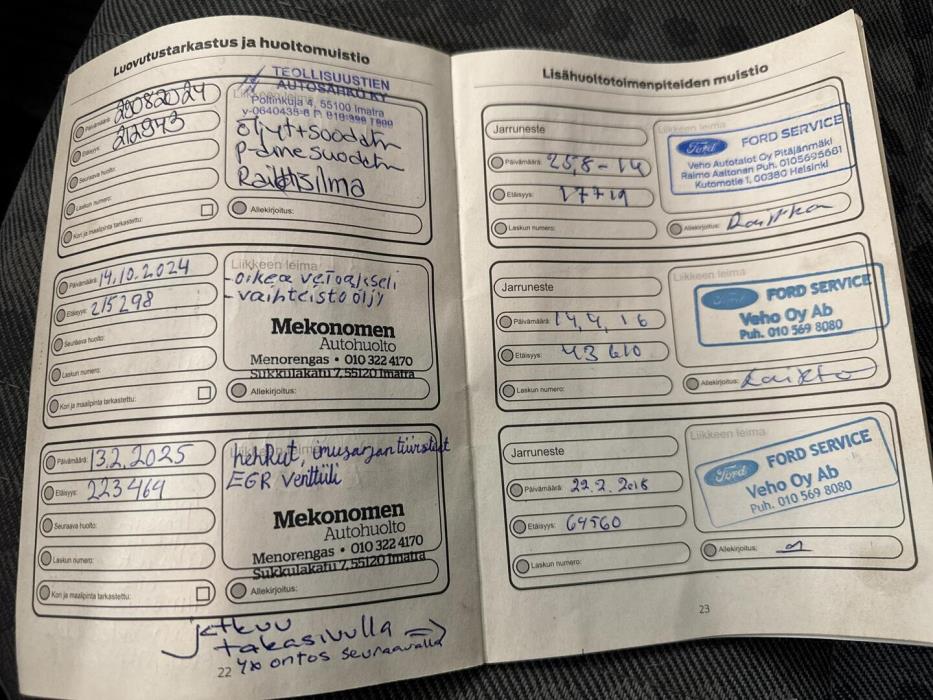 Luovutustarkastus ja huoltomuistio
Päivämäärä: 20082024
Etäisyys: 212943
Seuraava huolto:
Laskun numero:
Kori ja maalipinta tarkastettu:
Liikkeen leima
TEOLLISUUSTIEN
AUTOSÄHKÖ KY
Poltinkuja 4, 55100 Imatra
öljyt+suodatin
Raitisilma
Allekirjoitus:
Päivämäärä: 14.10.2024
Etäisyys: 215298
Seuraava huolto:
Laskun numero:
Kori ja maalipinta tarkastettu:
Liikkeen leima
-oikea vetoakseli
-vaihteistoöljy
Mekonomen
Autohuolto
Menorengas • 010 322 4170
Sukkulakatu 7, 55120 Imatra
Allekirjoitus:
Päivämäärä: 13.2.2025
Etäisyys: 223469
Seuraava huolto:
Laskun numero:
Kori ja maalipinta tarkastettu:
hehkut, imusarjan tiivisteet
EGR venttiili
Mekonomen
Autohuolto
Menorengas • 010 322 4170
Sukkulakatu 7, 55120 Imatra
Allekirjoitus:
jatkuu
takasivulla
seuraavalla
22
Lisähuoltotoimenpiteiden muistio
Jarruneste
Päivämäärä: 25,8-14
Etäisyys: 17719
Laskun numero:
Liikkeen leima
Ford FORD SERVICE
Veho Autotalot Oy Pitäjänmäki
Raimo Aaltonen Puh. 0105695661
Kutomotie 1, 00380 Helsinki
Allekirjoitus:
Jarruneste
Päivämäärä: 14,4,16
Etäisyys: 43610
Laskun numero:
Liikkeen leima
Ford FORD SERVICE
Veho Oy Ab
Puh. 010 569 8080
Allekirjoitus:
Jarruneste
Päivämäärä: 22.2.2018
Etäisyys: 64560
Laskun numero:
Liikkeen leima
Ford FORD SERVICE
Veho Oy Ab
Puh. 010 569 8080
Allekirjoitus:
23